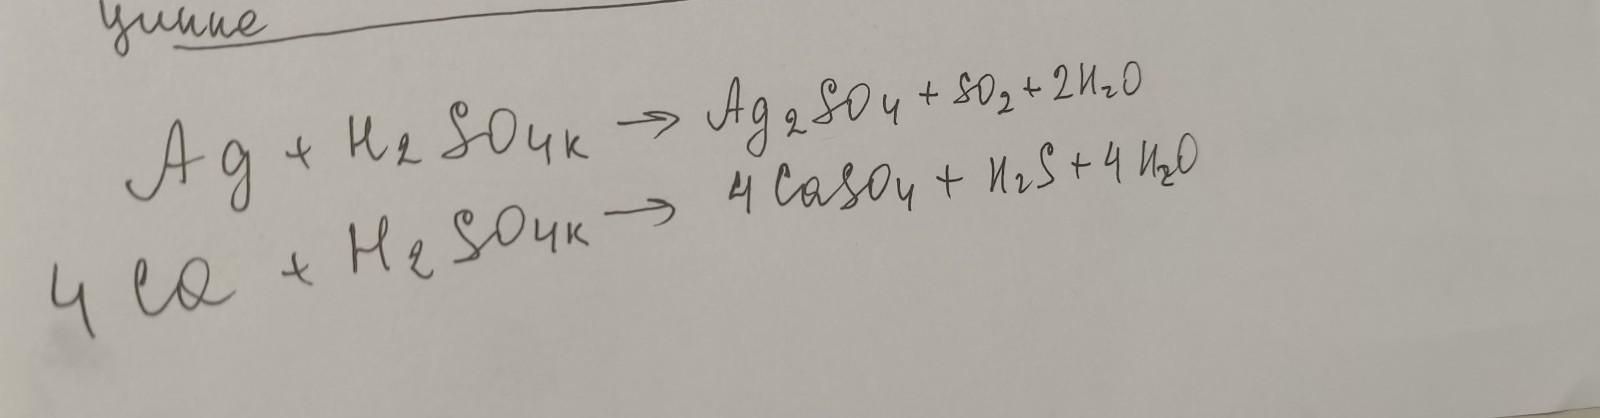 Ag + H₂SO₄к → Ag₂SO₄ + SO₂ + 2H₂O
4 Ca + H₂SO₄к → 4 CaSO₄ + H₂S + 4 H₂O